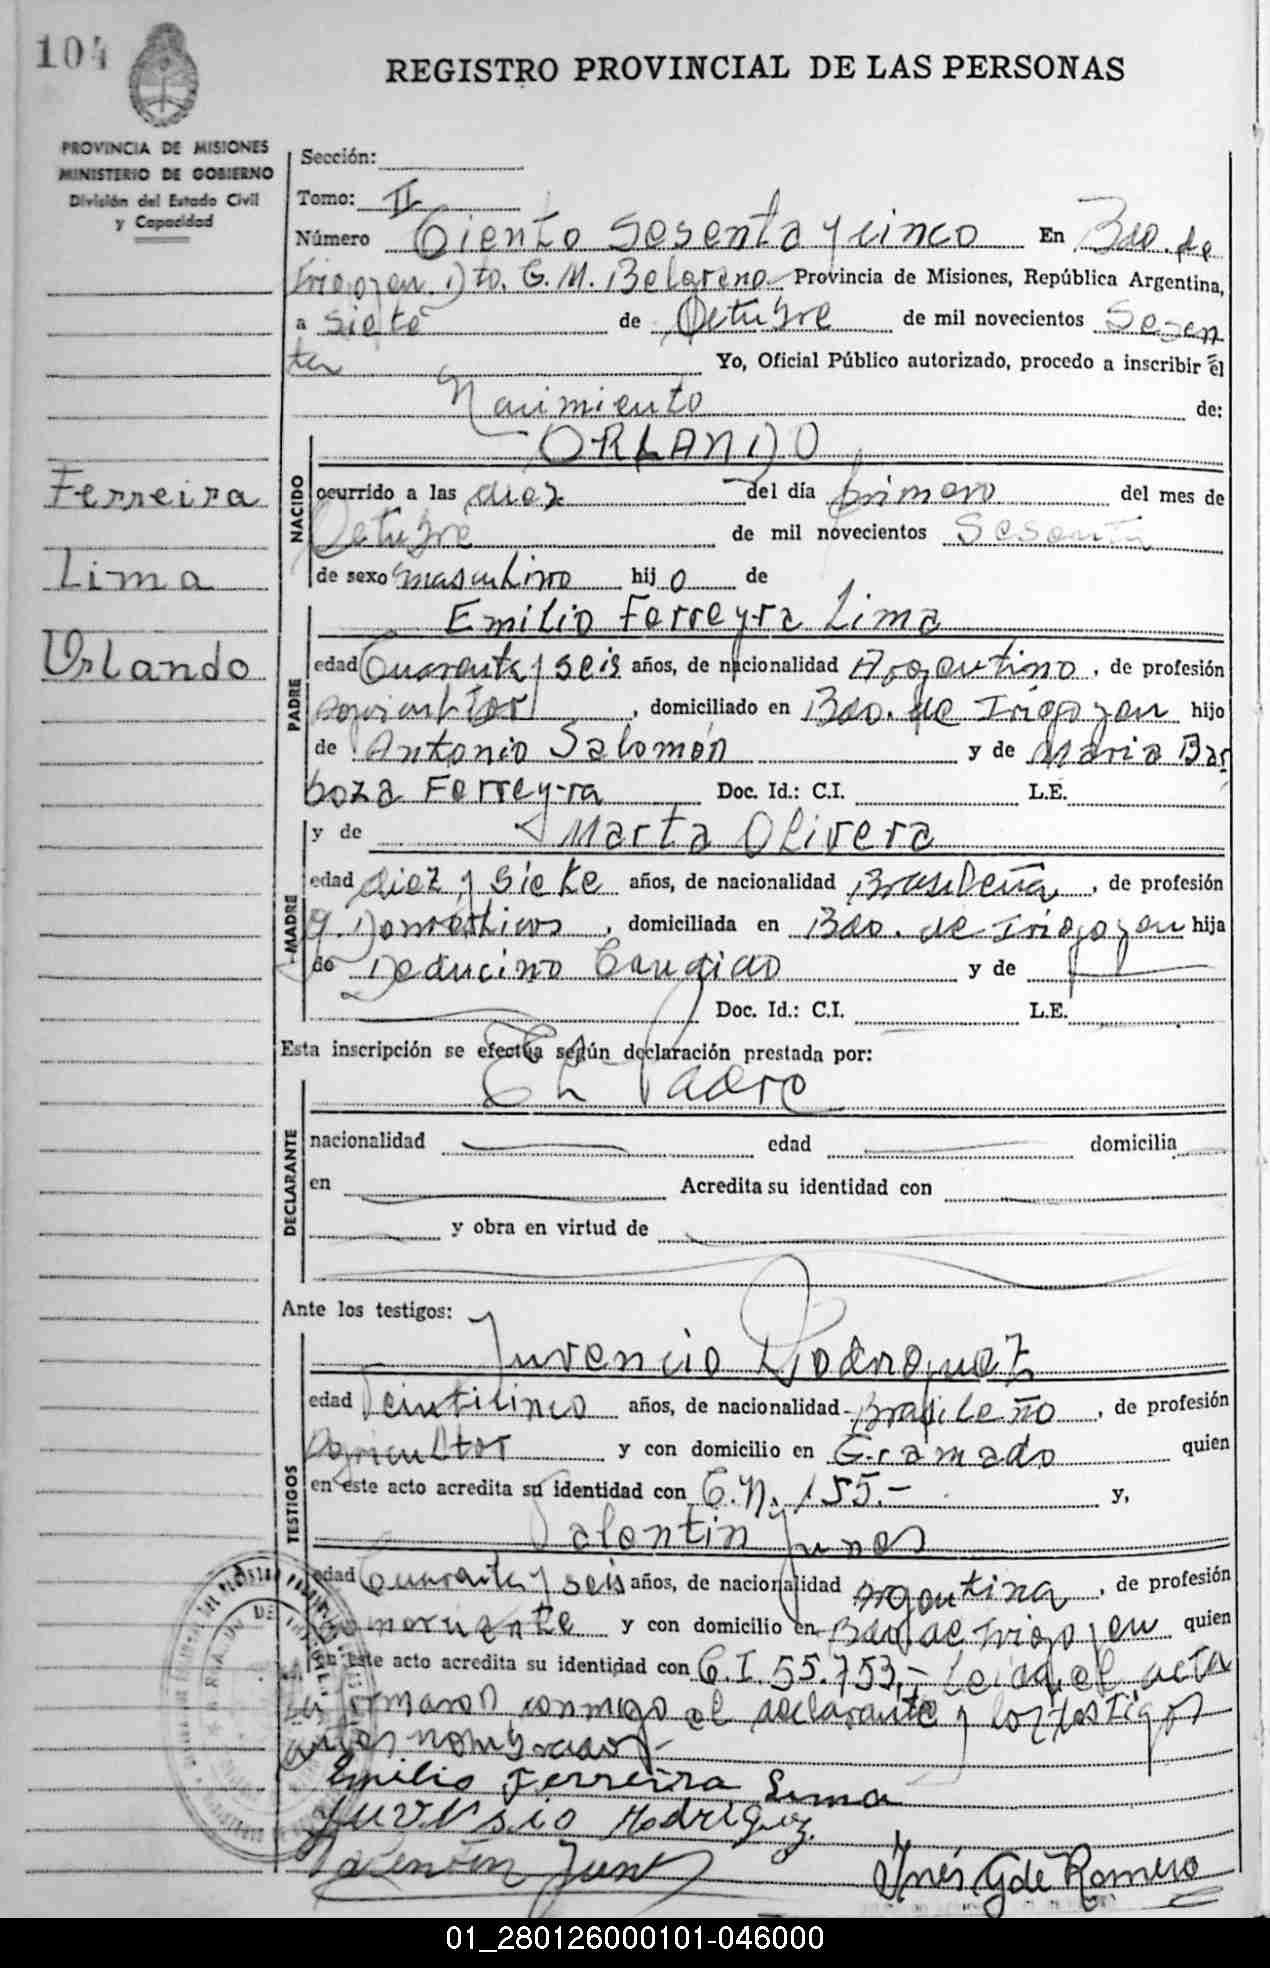 104
REGISTRO PROVINCIAL DE LAS PERSONAS
PROVINCIA DE MISIONES
MINISTERIO DE GOBIERNO
División del Estado Civil
y Capacidad
Sección:
Tomo: II
Número Ciento Sesenta y cinco En Bdo. de
Irigoyen Dto. G. M. Belgrano Provincia de Misiones, República Argentina,
a siete de Octubre de mil novecientos Sesen
ta Yo, Oficial Público autorizado, procedo a inscribir el
Nacimiento de:
ORLANDO
Ferreira
Lima
Orlando
NACIDO
ocurrido a las diez del día primero del mes de
Octubre de mil novecientos Sesenta
de sexo masculino hijo de
PADRE
Emilio Ferreyra Lima
edad Cuarenta y seis años, de nacionalidad Argentino, de profesión
agricultor, domiciliado en Bdo. de Irigoyen hijo
de Antonio Salomón y de Maria Bar
boza Ferreyra Doc. Id.: C.I. L.E.
MADRE
y de Marta Olivera
edad diez y siete años, de nacionalidad Brasileña, de profesión
Q. Domésticos, domiciliada en Bdo. de Irigoyen hija
de y de
Doc. Id.: C.I. L.E.
Esta inscripción se efectúa según declaración prestada por:
El Padre
DECLARANTE
nacionalidad edad domicilia
en Acredita su identidad con
y obra en virtud de
Ante los testigos:
TESTIGOS
Juvencio Rodriguez
edad Veinticinco años, de nacionalidad Brasileño, de profesión
Agricultor y con domicilio en Gramado quien
en este acto acredita su identidad con C.N. 155.- y,
Valentin Junes
edad Cuarenta y seis años, de nacionalidad argentina, de profesión
comerciante y con domicilio en Bdo. de Irigoyen quien
en este acto acredita su identidad con C.I. 55.753,- Leida el acta
la firmaron conmigo el declarante y los testigos
antes nombrados.-
Emilio Ferreira Lima
Juvensio Rodriguez.
Valentin
Inés G de Romero
01_280126000101-046000